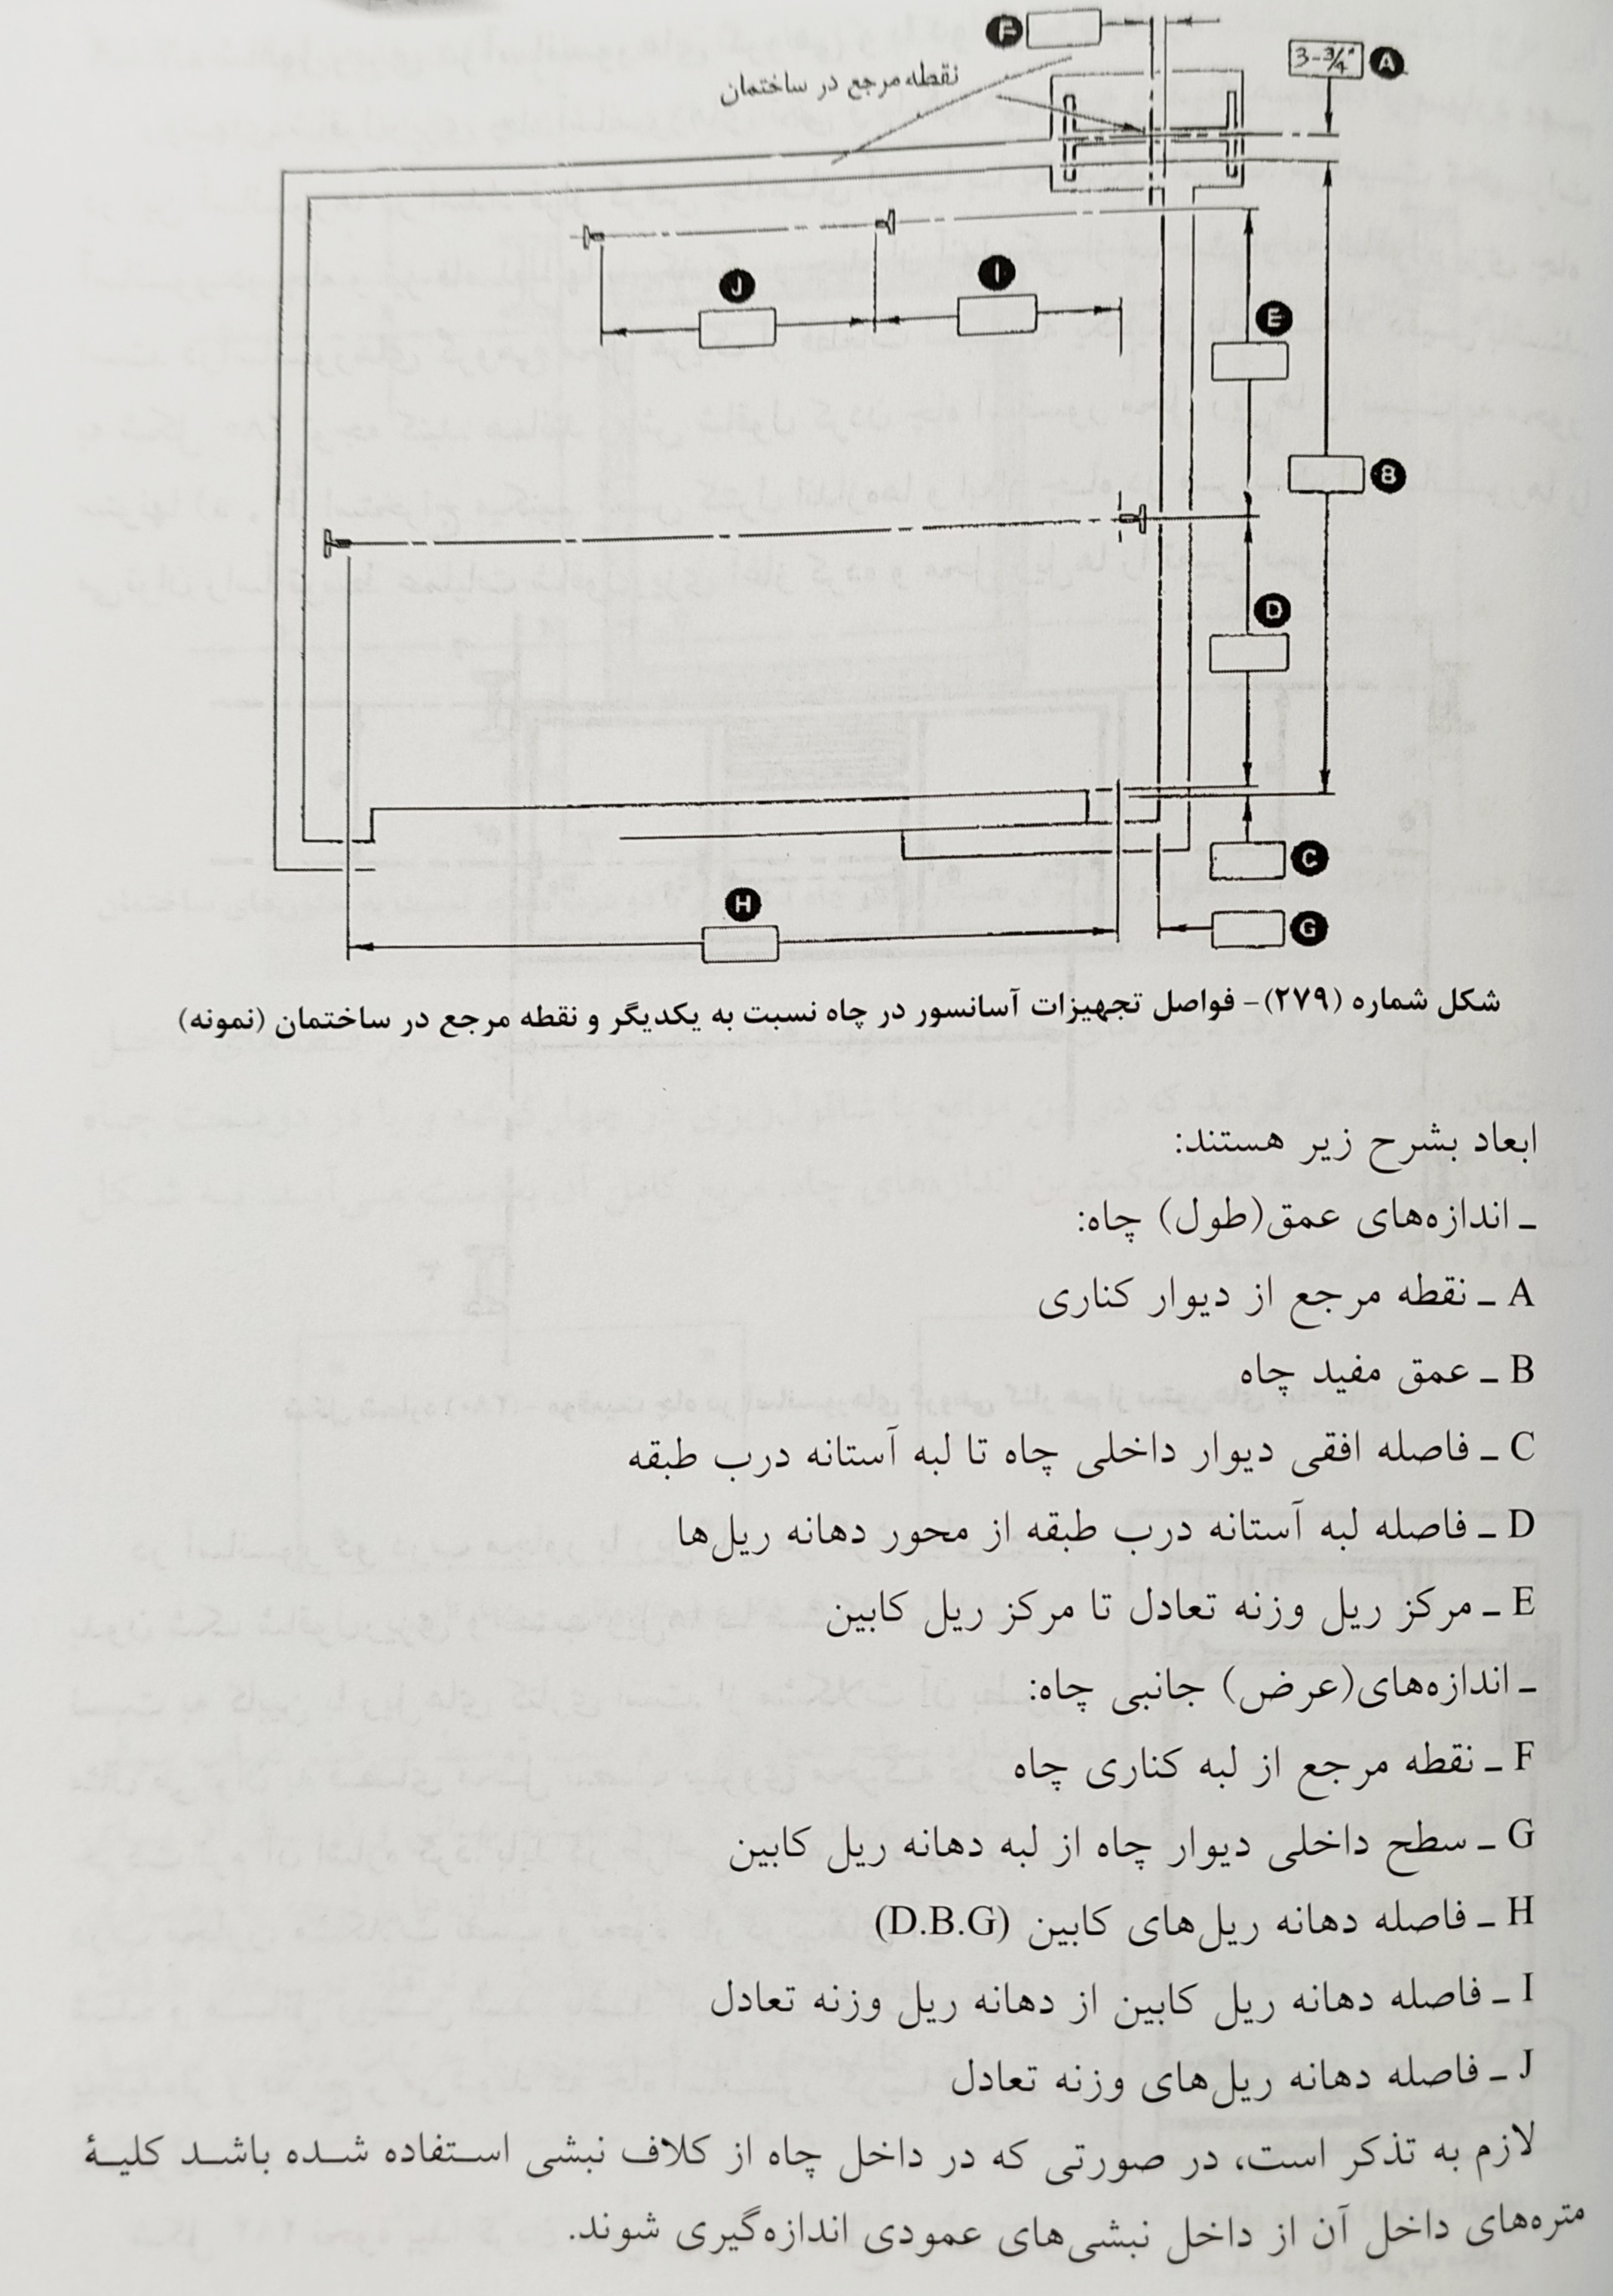 F
3-3/4" A
نقطه مرجع در ساختمان
J
I
E
B
D
C
H
G
شکل شماره (۲۷۹)- فواصل تجهیزات آسانسور در چاه نسبت به یکدیگر و نقطه مرجع در ساختمان (نمونه)
ابعاد بشرح زیر هستند:
ـ اندازه‌های عمق(طول) چاه:
A ـ نقطه مرجع از دیوار کناری
B ـ عمق مفید چاه
C ـ فاصله افقی دیوار داخلی چاه تا لبه آستانه درب طبقه
D ـ فاصله لبه آستانه درب طبقه از محور دهانه ریل‌ها
E ـ مرکز ریل وزنه تعادل تا مرکز ریل کابین
ـ اندازه‌های(عرض) جانبی چاه:
F ـ نقطه مرجع از لبه کناری چاه
G ـ سطح داخلی دیوار چاه از لبه دهانه ریل کابین
H ـ فاصله دهانه ریل‌های کابین (D.B.G)
I ـ فاصله دهانه ریل کابین از دهانه ریل وزنه تعادل
J ـ فاصله دهانه ریل‌های وزنه تعادل
لازم به تذکر است، در صورتی که در داخل چاه از کلاف نبشی استفاده شده باشد کلیهٔ
متره‌های داخل آن از داخل نبشی‌های عمودی اندازه‌گیری شوند.